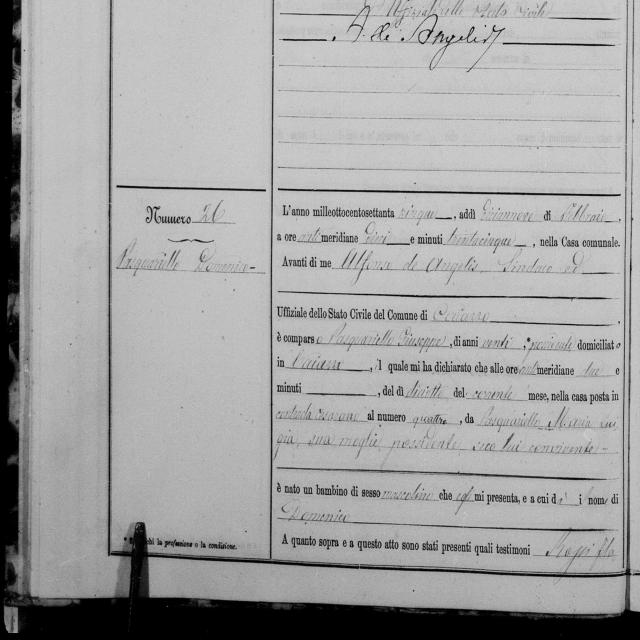 Uffiziale Stato Civile
A de Angelis
Numero 26
Pasquariello Domenico
L'anno milleottocentosettanta cinque, addì diciannove di Febbraio,
a ore anti meridiane dieci e minuti trentacinque, nella Casa comunale.
Avanti di me Alfonso de Angelis Sindaco ed
Uffiziale dello Stato Civile del Comune di
è comparso Pasquariello Giuseppe, di anni venti, possidente domiciliato
in, il quale mi ha dichiarato che alle ore anti meridiane due e
minuti, del dì diciotto del corrente mese, nella casa posta in
al numero quattro, da Pasquariello Maria Lui
gia, sua moglie possidente, seco lui convivente
è nato un bambino di sesso mascolino che egli mi presenta, e a cui dà i nomi di
Domenico
A quanto sopra e a questo atto sono stati presenti quali testimoni
la professione o la condizione.